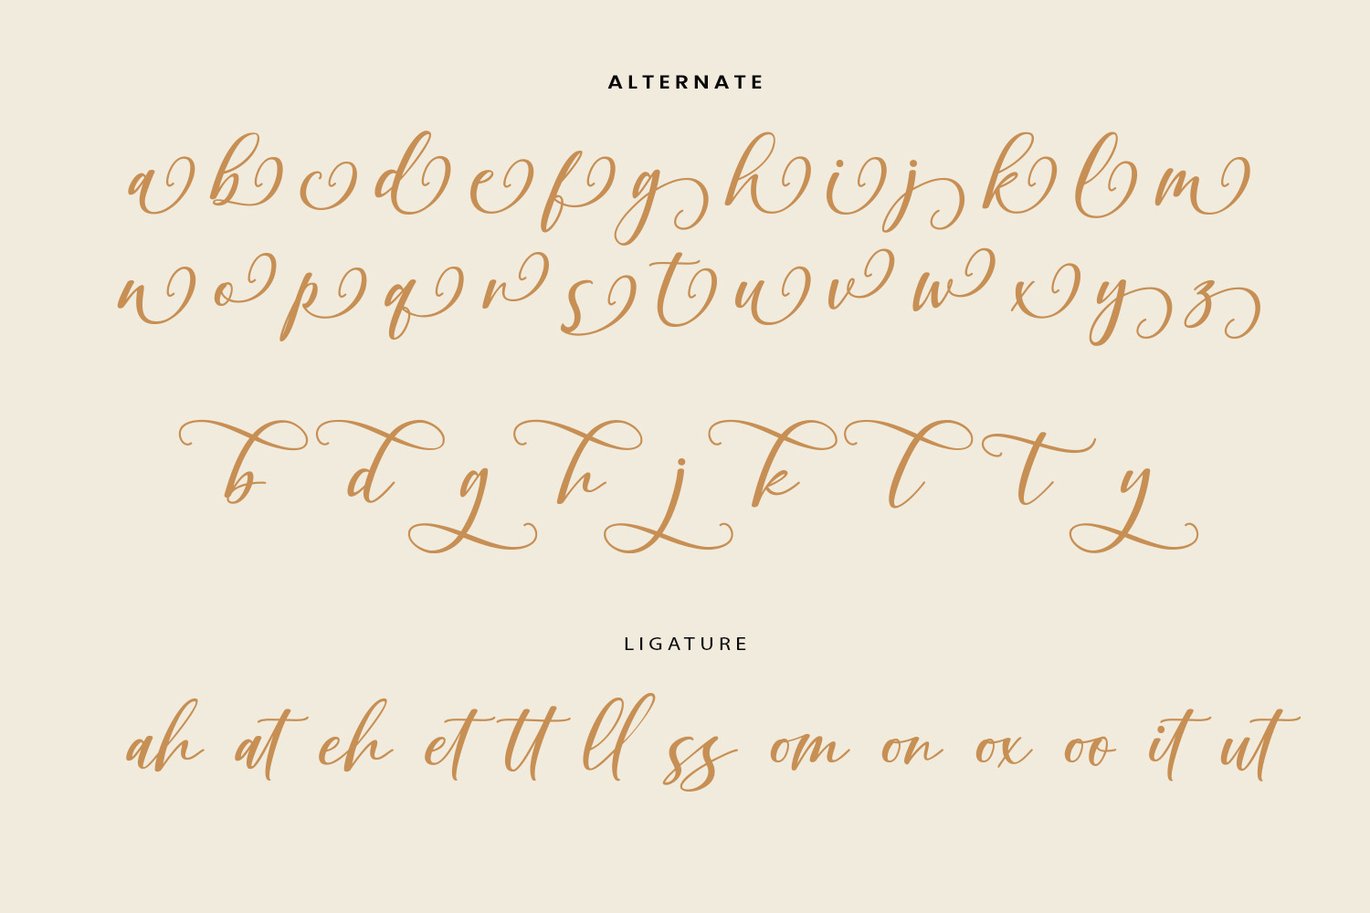 ALTERNATE
a b c d e f g h i j k l m
n o p q r s t u v w x y z
b d g h j k l t y
LIGATURE
ah at eh et tt ll ss om on ox oo it ut